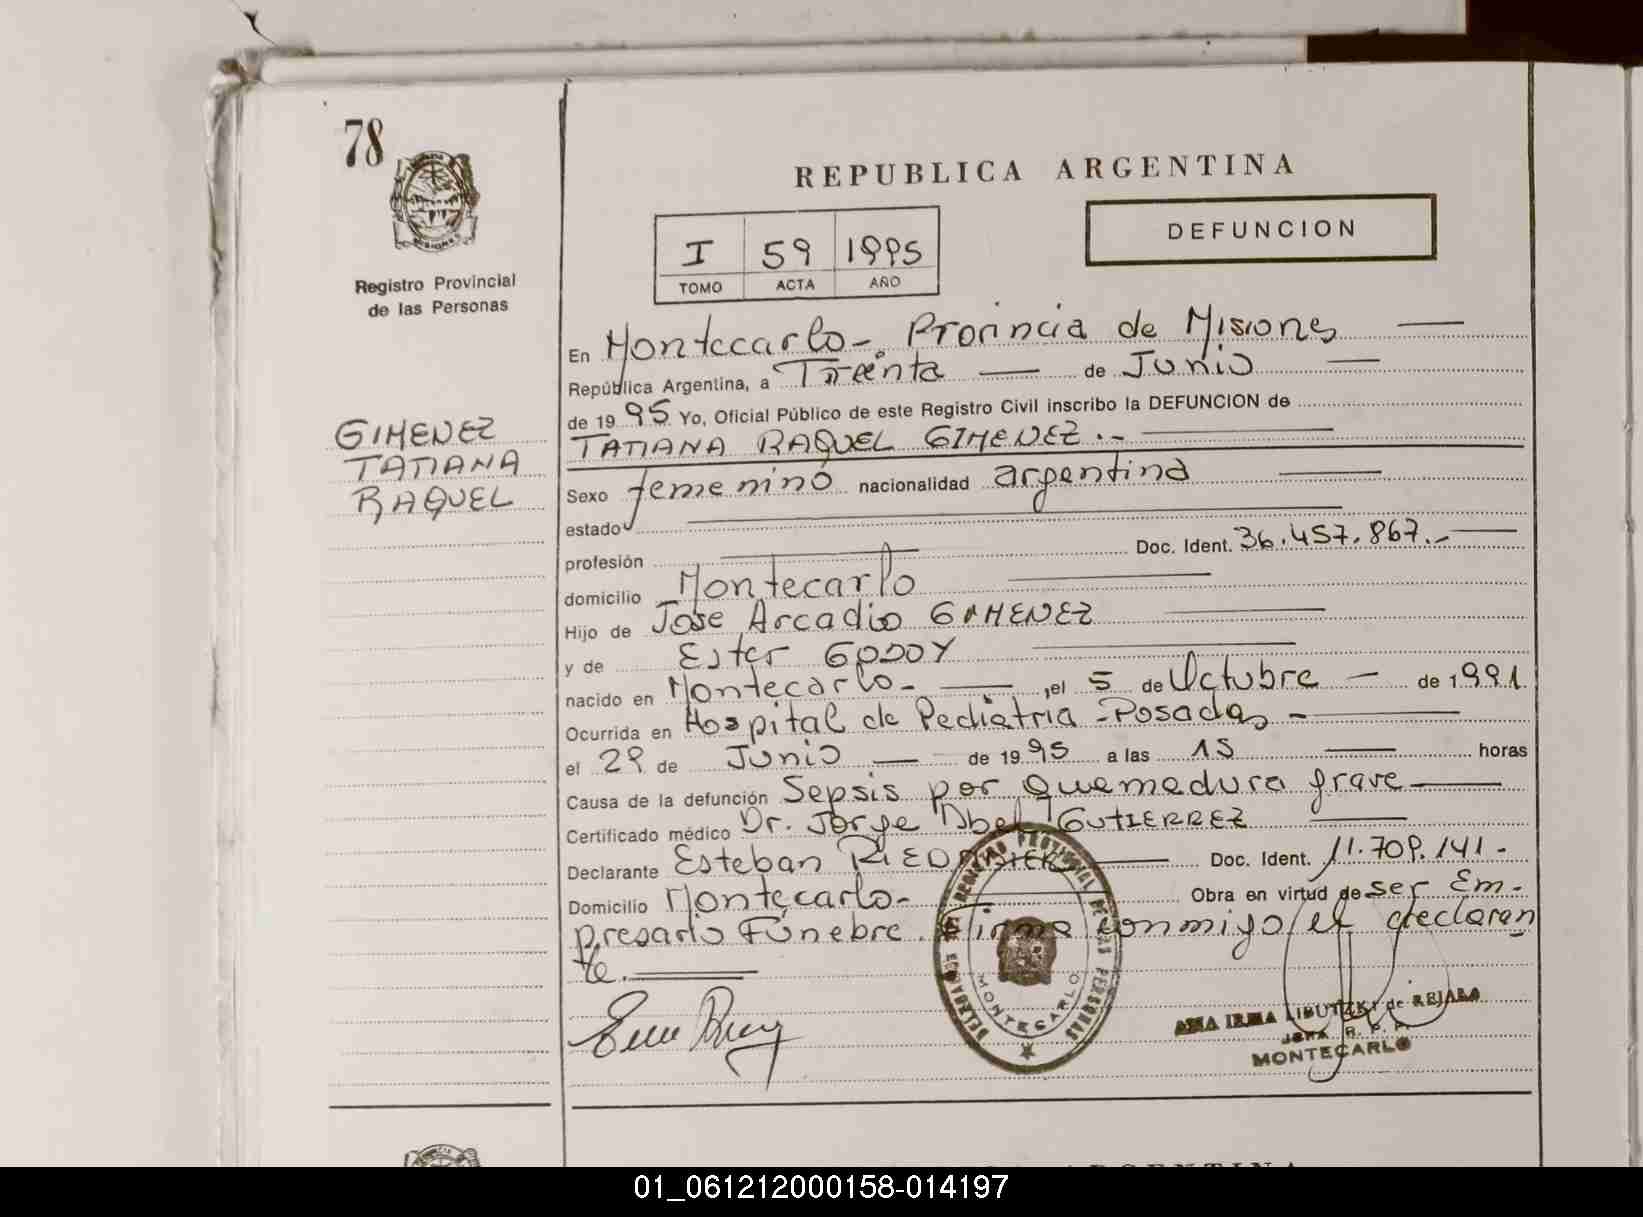 78
REPUBLICA ARGENTINA
DEFUNCION
I 59 1995
TOMO ACTA AÑO
Registro Provincial
de las Personas
GIMENEZ
TATIANA
RAQUEL
En Montecarlo-. Provincia de Misiones
República Argentina, a Treinta de Junio
de 1995 Yo, Oficial Público de este Registro Civil inscribo la DEFUNCION de
TATIANA RAQUEL GIMENEZ.-
Sexo femenino nacionalidad argentina
estado
profesión Doc. Ident. 36.457.867.-
domicilio Montecarlo
Hijo de Jose Arcadio GIMENEZ
y de Ester GODOY
nacido en Montecarlo- ,el 5 de Octubre de 1991
Ocurrida en Hospital de Pediatria - Posadas -
el 29 de Junio de 1995 a las 15 horas
Causa de la defunción Sepsis por Quemadura grave
Certificado médico Dr. Jorge Abel GUTIERREZ
Declarante Esteban Doc. Ident. 11.709.141-
Domicilio Montecarlo- Obra en virtud de ser Em-
presario Fúnebre. Firma conmigo el declaran
te.
REGISTRO PROVINCIAL DE LAS PERSONAS
MONTECARLO
ANA IRMA LIBUTZKI de REJALA
JEFA R. P. P.
MONTECARLO
ARGENTINA
01_061212000158-014197